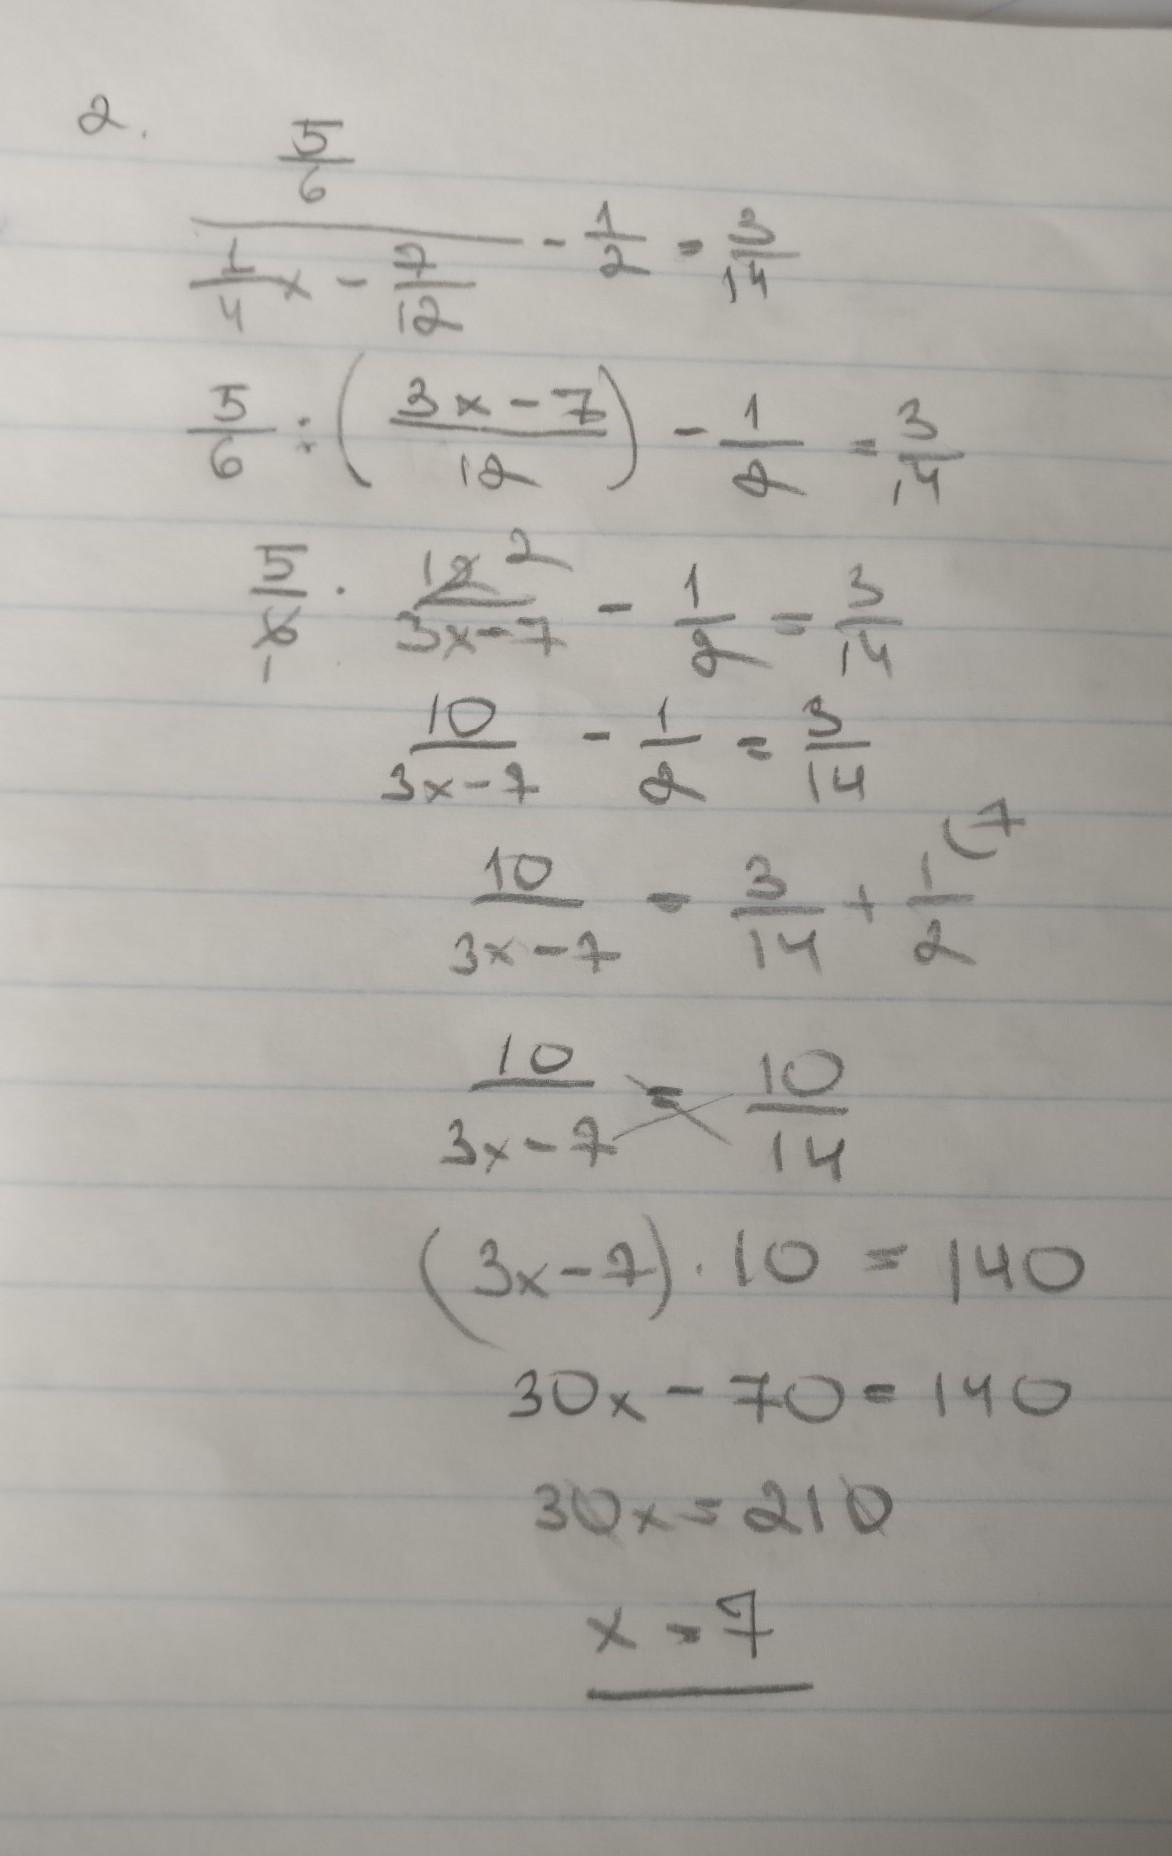 2. 5/6 / (1/4 x - 7/12) - 1/2 = 3/14
5/6 : ( 3x-7 / 12 ) - 1/2 = 3/14
5/6 1 · 12 2 / 3x-7 - 1/2 = 3/14
10 / 3x-7 - 1/2 = 3/14
10 / 3x-7 = 3/14 + 1/2 (7
10 / 3x-7 = 10/14
(3x-7) · 10 = 140
30x - 70 = 140
30x = 210
x = 7